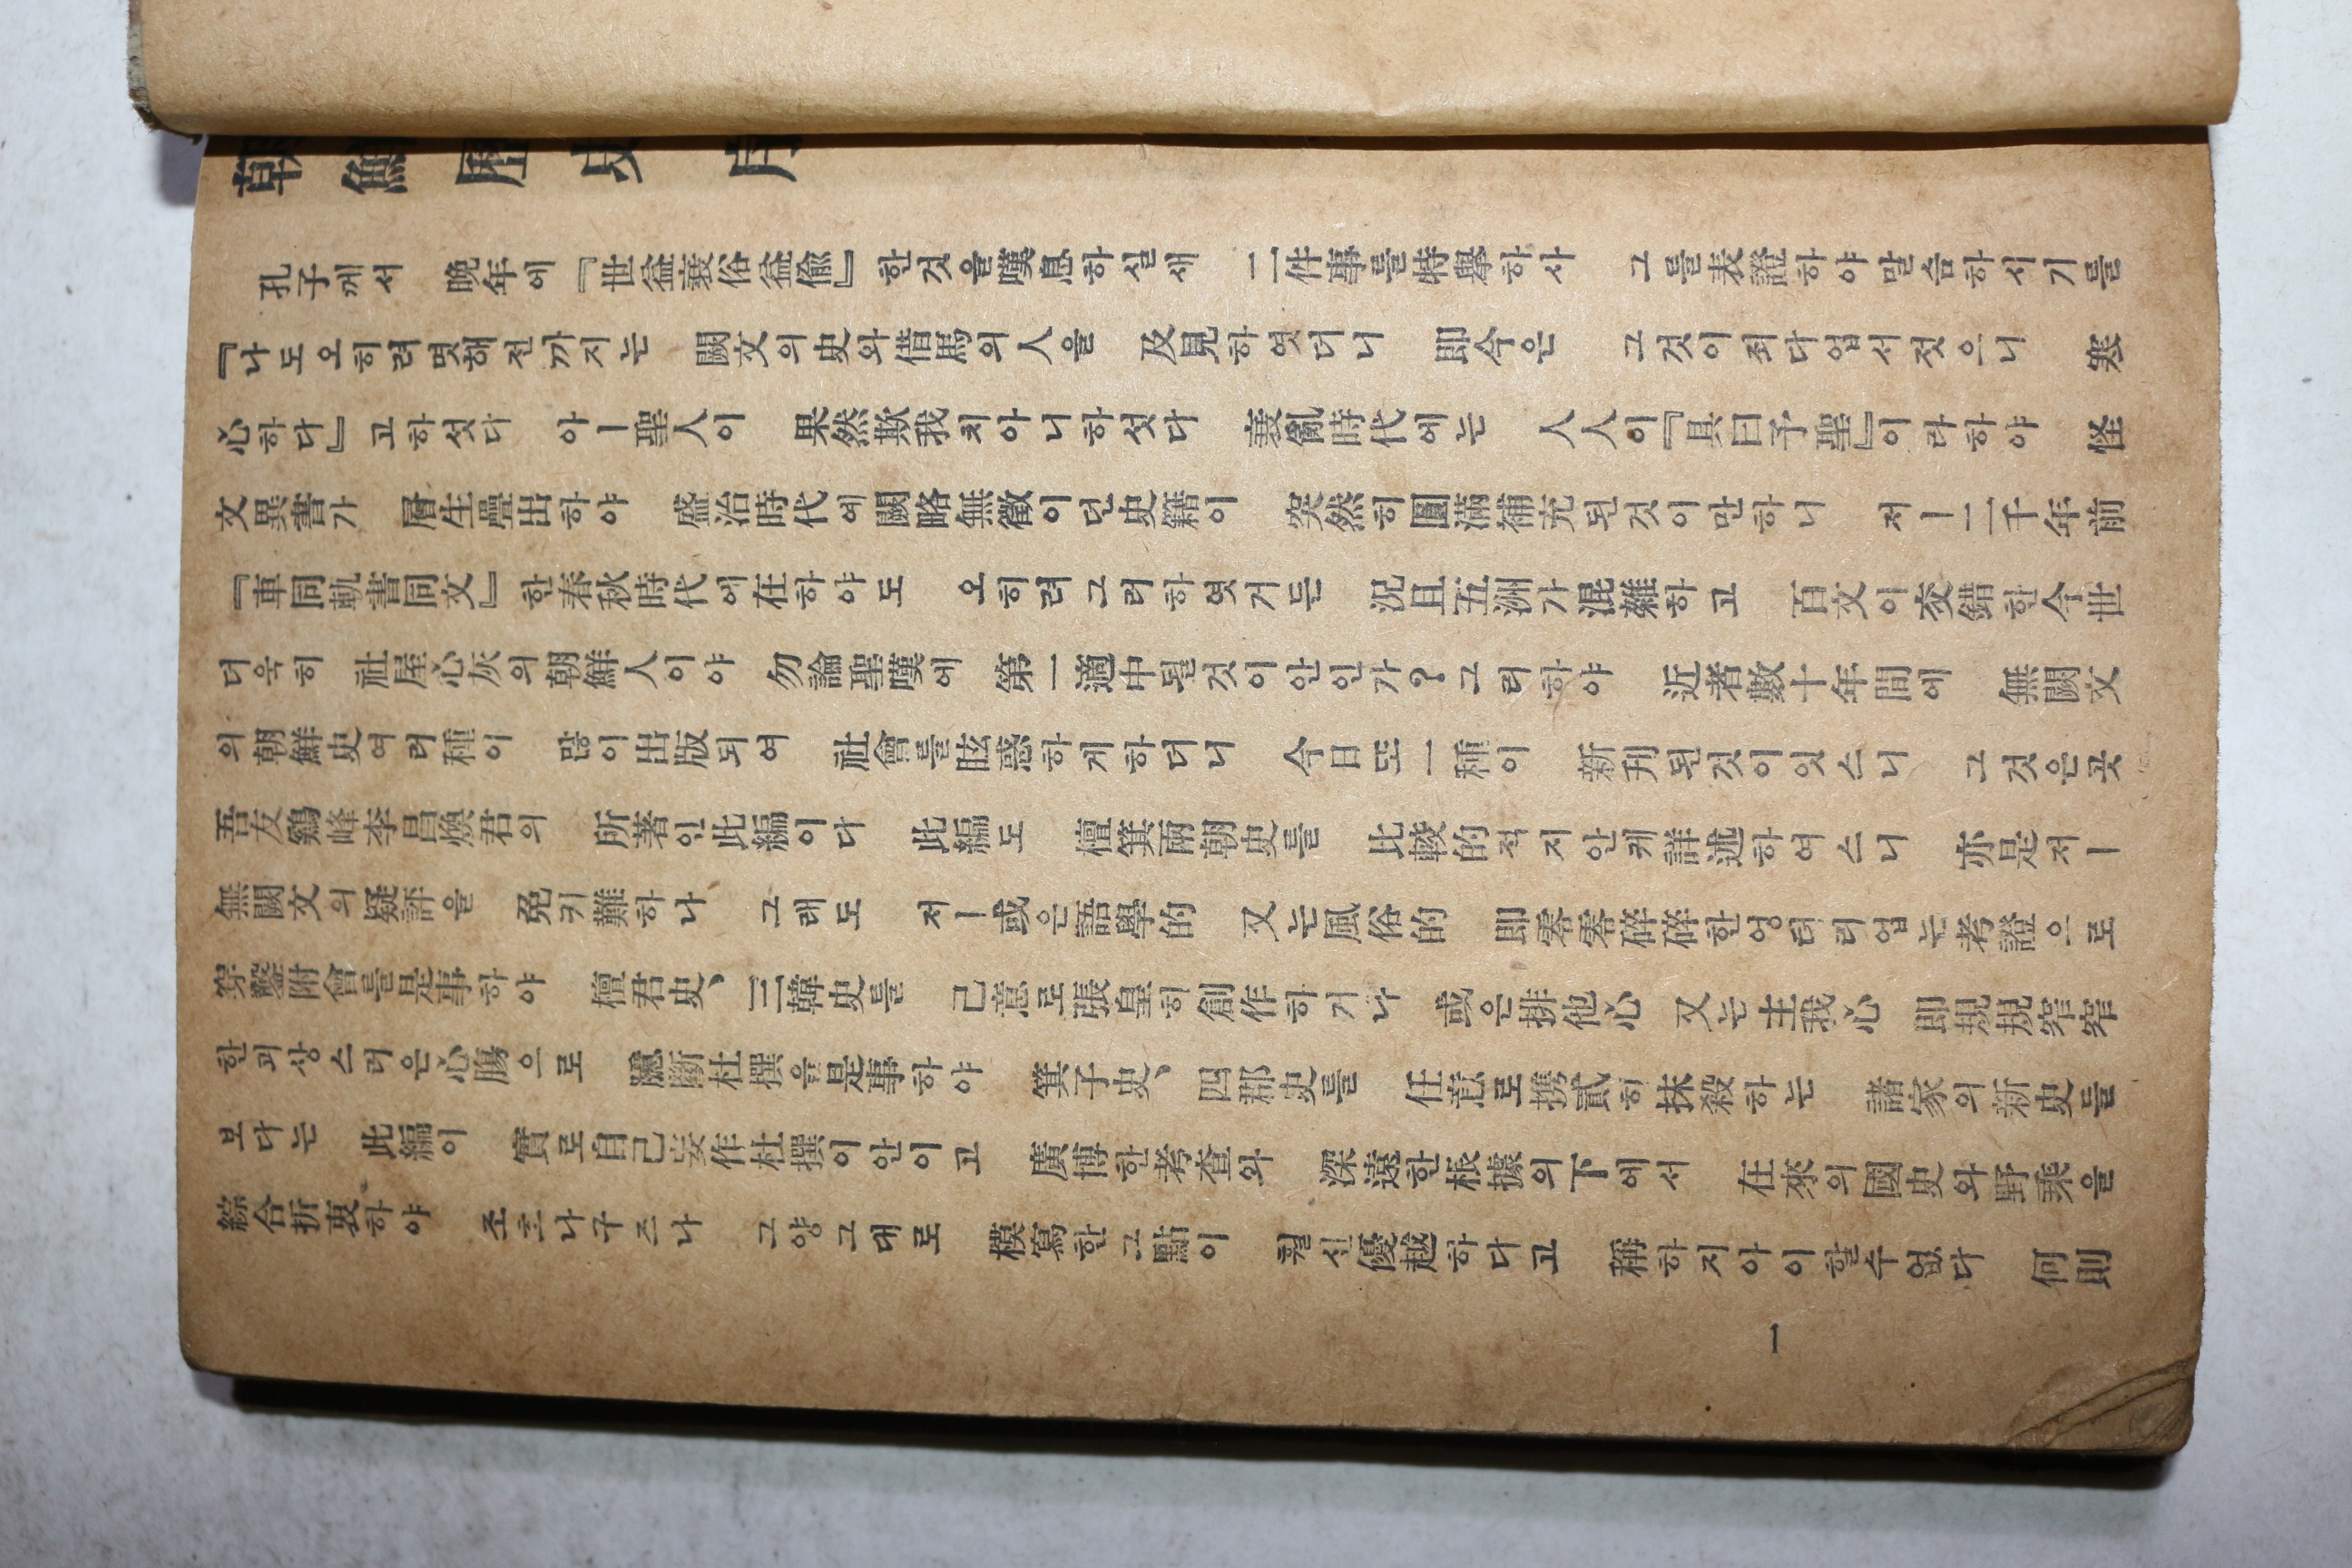 朝鮮歷史序
孔子께서 晩年에『世益衰俗益偸』한것을嘆息하실새 二件事를特擧하사 그를表證하야말슴하시기를
『나도오히려몃해전까지는 闕文의史와借馬의人을 及見하엿더니 即今은 그것이죄다업서젓으니 寒
心하다』고하섯다 아ー聖人이 果然欺我치아니하섯다 衰亂時代에는 人人이『具曰予聖』이라하야 怪
文異書가 層生疊出하야 盛治時代예闕略無徵이던史籍이 突然히圓滿補充된것이만하니 저ー二千年前
『車同軌書同文』한春秋時代에在하야도 오히려그러하엿거든 況且五洲가混雜하고 百文이交錯한今世
더욱히 社屋心灰의朝鮮人이야 勿論聖嘆에 第一適中될것이안인가?그리하야 近者數十年間에 無闕文
의朝鮮史여러種이 많이出版되여 社會를眩惑하게하더니 今日또一種이 新刊된것이잇스니 그것은곳
吾友鷄峰李昌煥君의 所著인此編이다 此編도 檀箕兩朝史를 比較的적지안케詳述하여스니 亦是저ー
無闕文의疑評을 免키難하나 그래도 저ー或은語學的 又는風俗的 即零零碎碎한엉터리업는考證으로
穿鑿附會를是事하야 檀君史、三韓史를 己意로張皇히創作하거나 或은排他心 又는主我心 即規規窄窄
한괴상스러은心膓으로 臆斷杜撰을是事하야 箕子史、四郡史를 任意로携貳히抹殺하는 諸家의新史들
보다는 此編이 實로自己妄作杜撰이안이고 廣博한考査와 深遠한根據의下에서 在來의國史와野乘을
綜合折衷하야 조흐나구즈나 그양그대로 模寫한그點이 훨신優越하다고 稱하지아이할수없다 何則
一